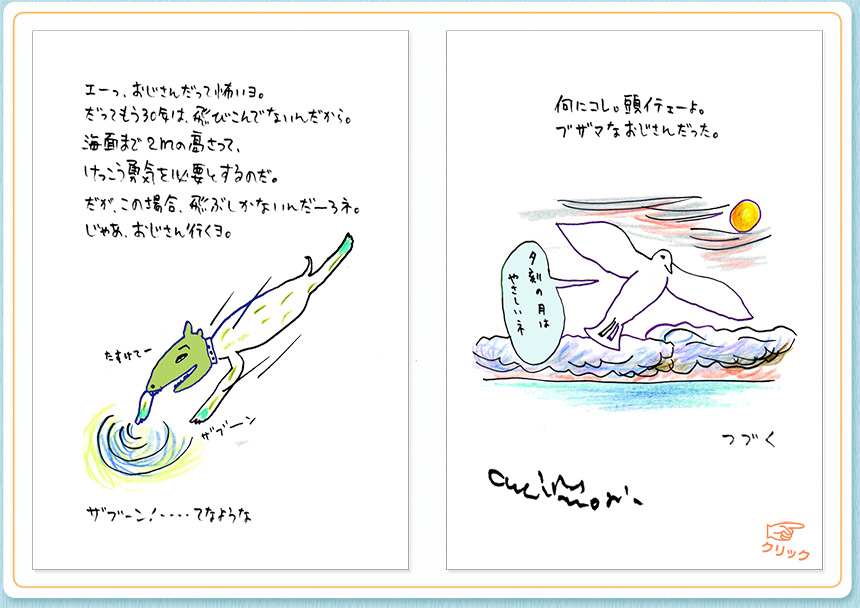 エーっ、おじさんだって怖いヨ。
だってもう30年は、飛びこんでないんだから。
海面まで2mの高さって、
けっこう勇気を必要とするのだ。
だが、この場合、飛ぶしかないんだーろネ。
じゃあ、おじさん行くヨ。
たすけてー
ザブーン
ザブーン!・・・・てなような
何にコレ。頭イテェーよ。
ブザマなおじさんだった。
夕刻の月は
やさしいネ
つづく
クリック